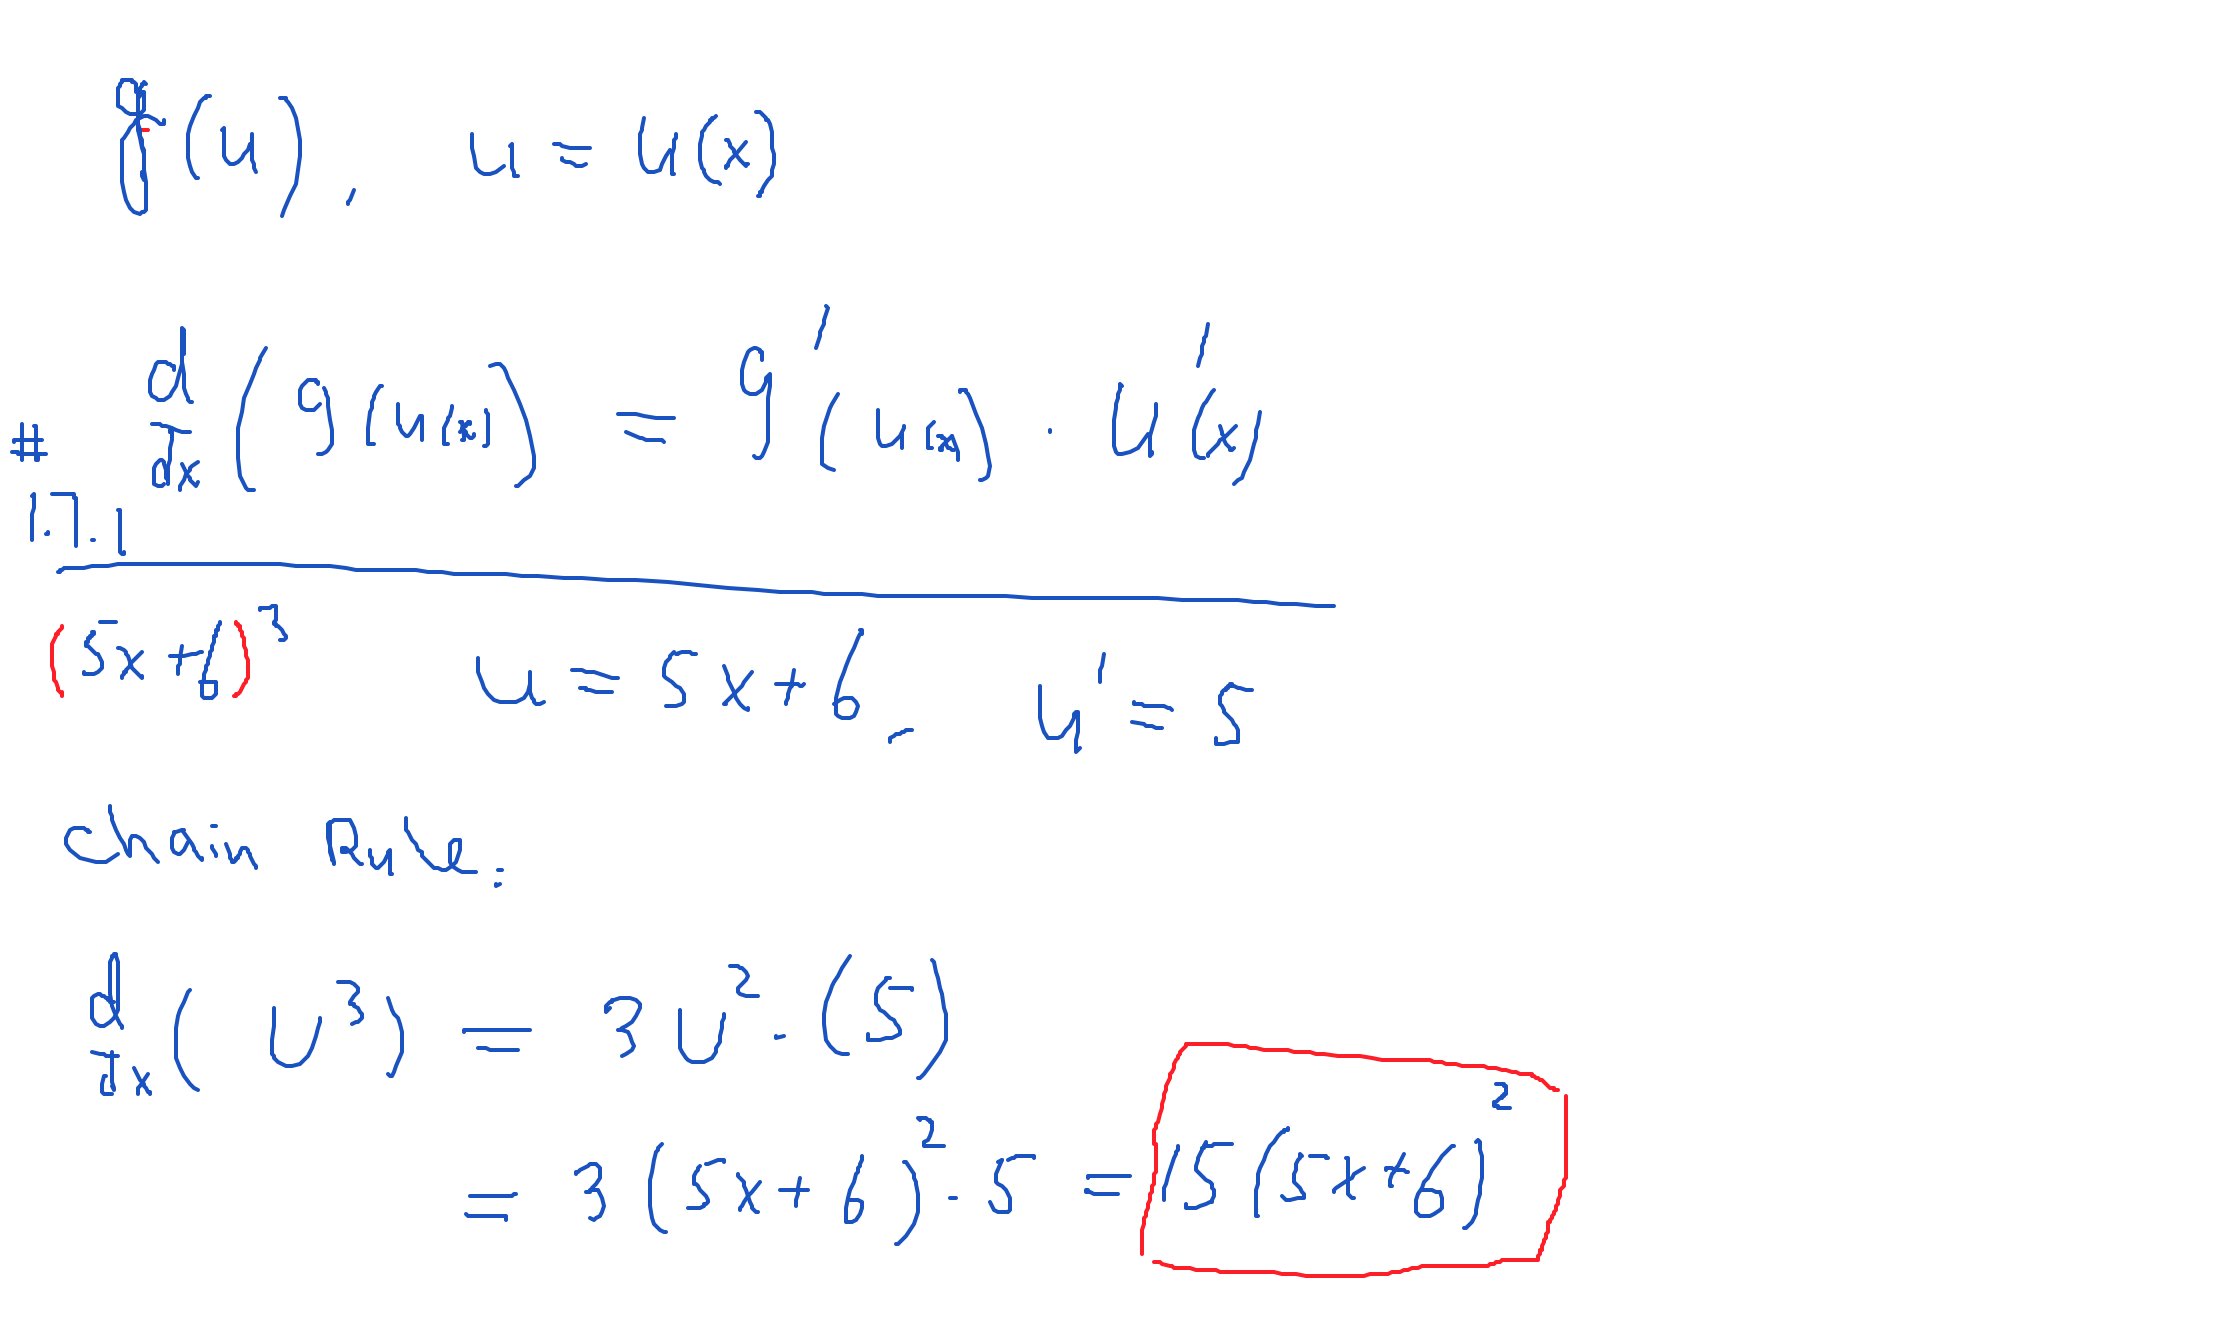 g(u), u = u(x)
d/dx (g(u(x)) = g'(u(x)) · u'(x)
# 1.7.1
(5x+6)³ u = 5x+6, u' = 5
Chain Rule:
d/dx (u³) = 3u² · (5)
= 3(5x+6)² · 5 = 15(5x+6)²